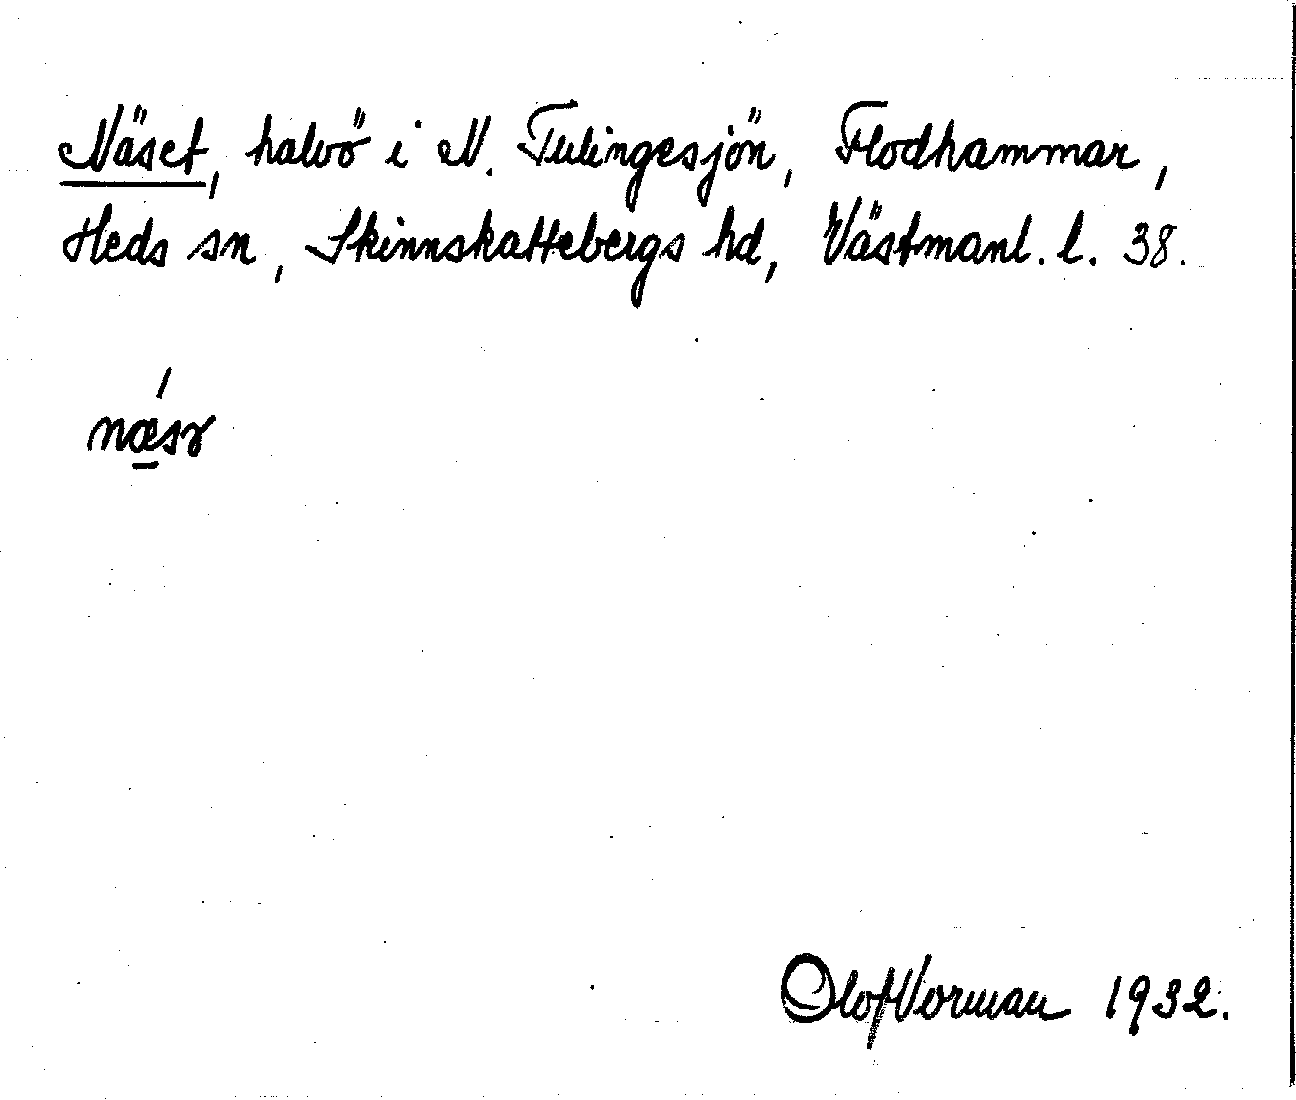 Näset, halvö i N. Tulingesjön, Flodhammar,
Heds sn, Skinnskattebergs hd, Västmanl. l. 38.
næsɤ
Olof Vorman 1932.